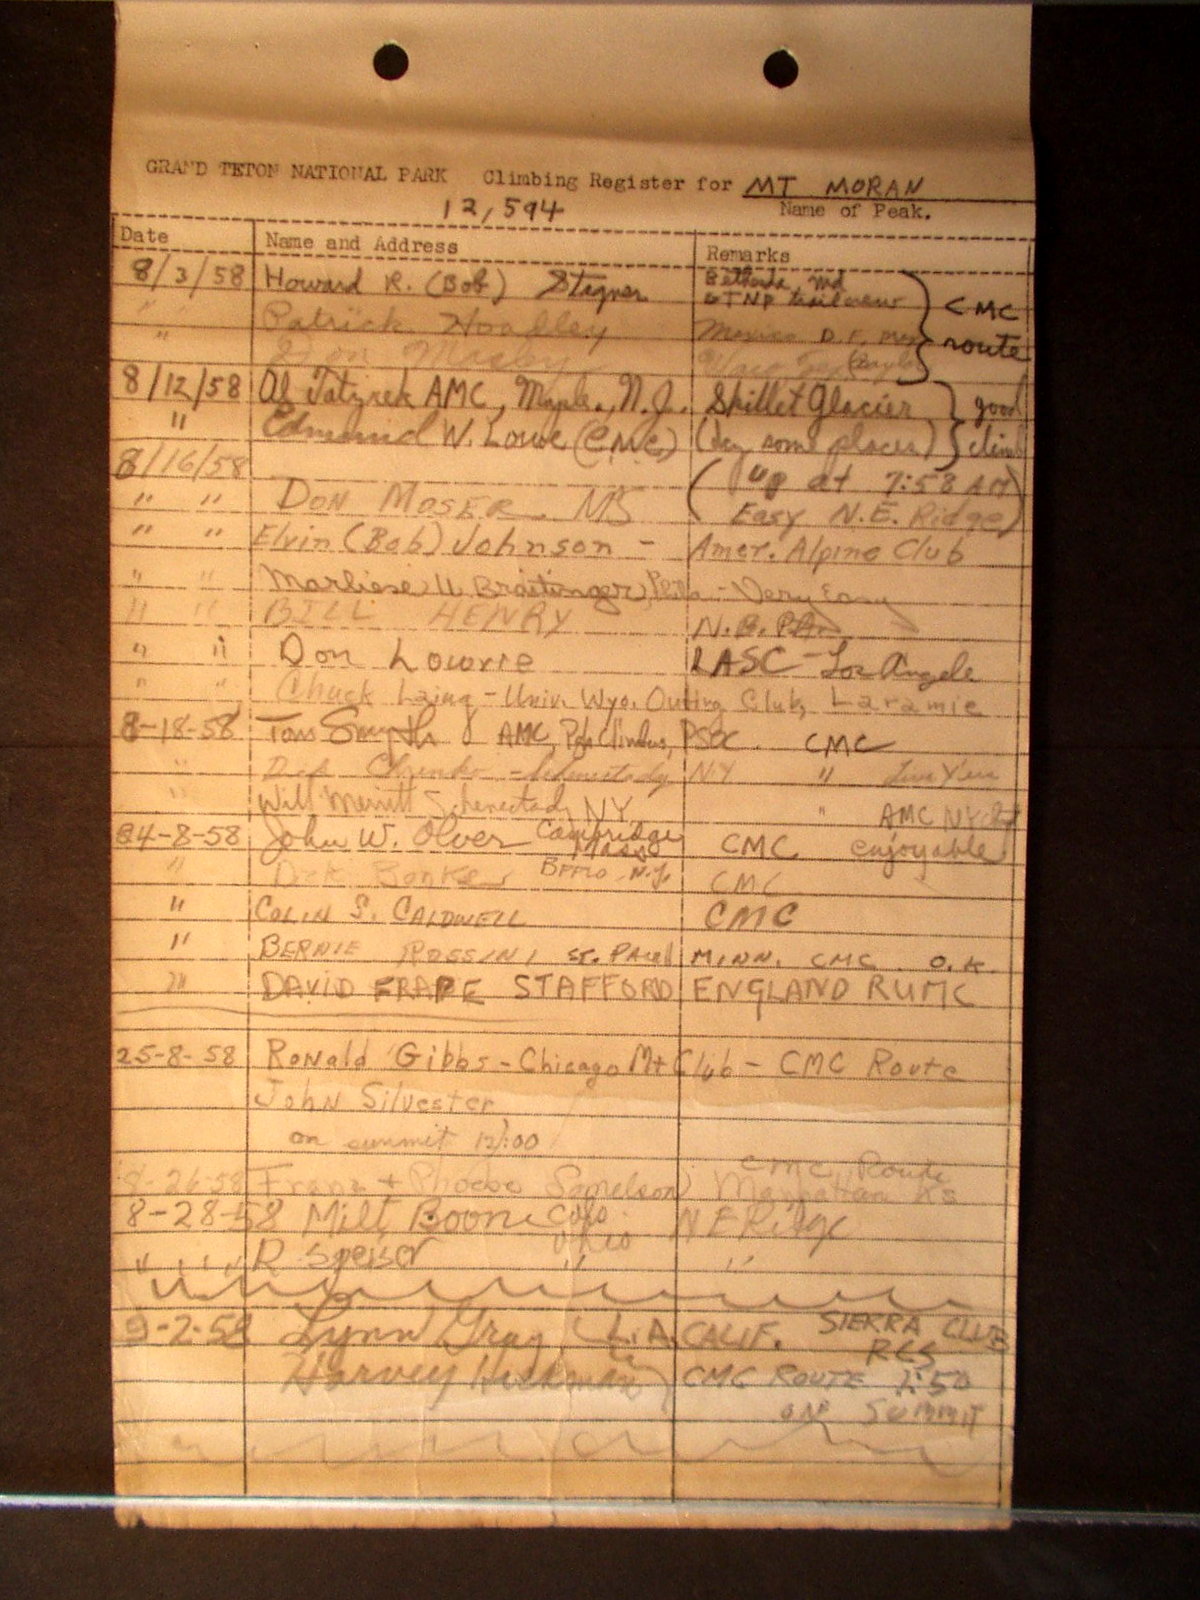 GRAND TETON NATIONAL PARK Climbing Register for MT MORAN
12,594 Name of Peak.
Date Name and Address Remarks
8/3/58 Howard R. (Bob) Stagner Bethesda, Md
GTNP trail crew CMC
" Patrick Hoadley Mexico D.F. route
" Don
8/12/58 Al Tatyrek AMC, N.J. Skillet Glacier good
" Edmund W. Lowe (CMC) (dry some places) climb
8/16/58 (up at 7:58 AM
" " DON MOSER Easy N.E. Ridge)
" " Elvin (Bob) Johnson - Amer. Alpine Club
" " Marliese U. Braitinger, - Very Easy
" " BILL HENRY
" " Don Lowrie LASC - Los Angele
" " Chuck Laing - Univ. Wyo. Outing Club, Laramie
8-18-58 Tom Smyth AMC, PSOC CMC
" Schenectady N.Y "
" Will Merritt Schenectady NY. " AMC NY
24-8-58 John W. Olver Cambridge Mass CMC enjoyable
" Dick CMC
" COLIN S. CALDWELL CMC
" BERNIE ROSSINI ST. PAUL MINN. CMC O.K.
" DAVID FRAPE STAFFORD ENGLAND RUMC
25-8-58 Ronald Gibbs - Chicago Mt Club - CMC Route
John Silvester
on summit 12:00
CMC Route
8-26-58 Franz + Phoebe Samelson Manhattan Ks
8-28-58 Milt Boone Colo. N E Ridge
Ohio
" " " R. Speiser " "
9-2-58 Lynn Gray L.A. CALIF. SIERRA CLUB
RCS
Harvey Hickman CMC ROUTE 1:50
ON SUMMIT